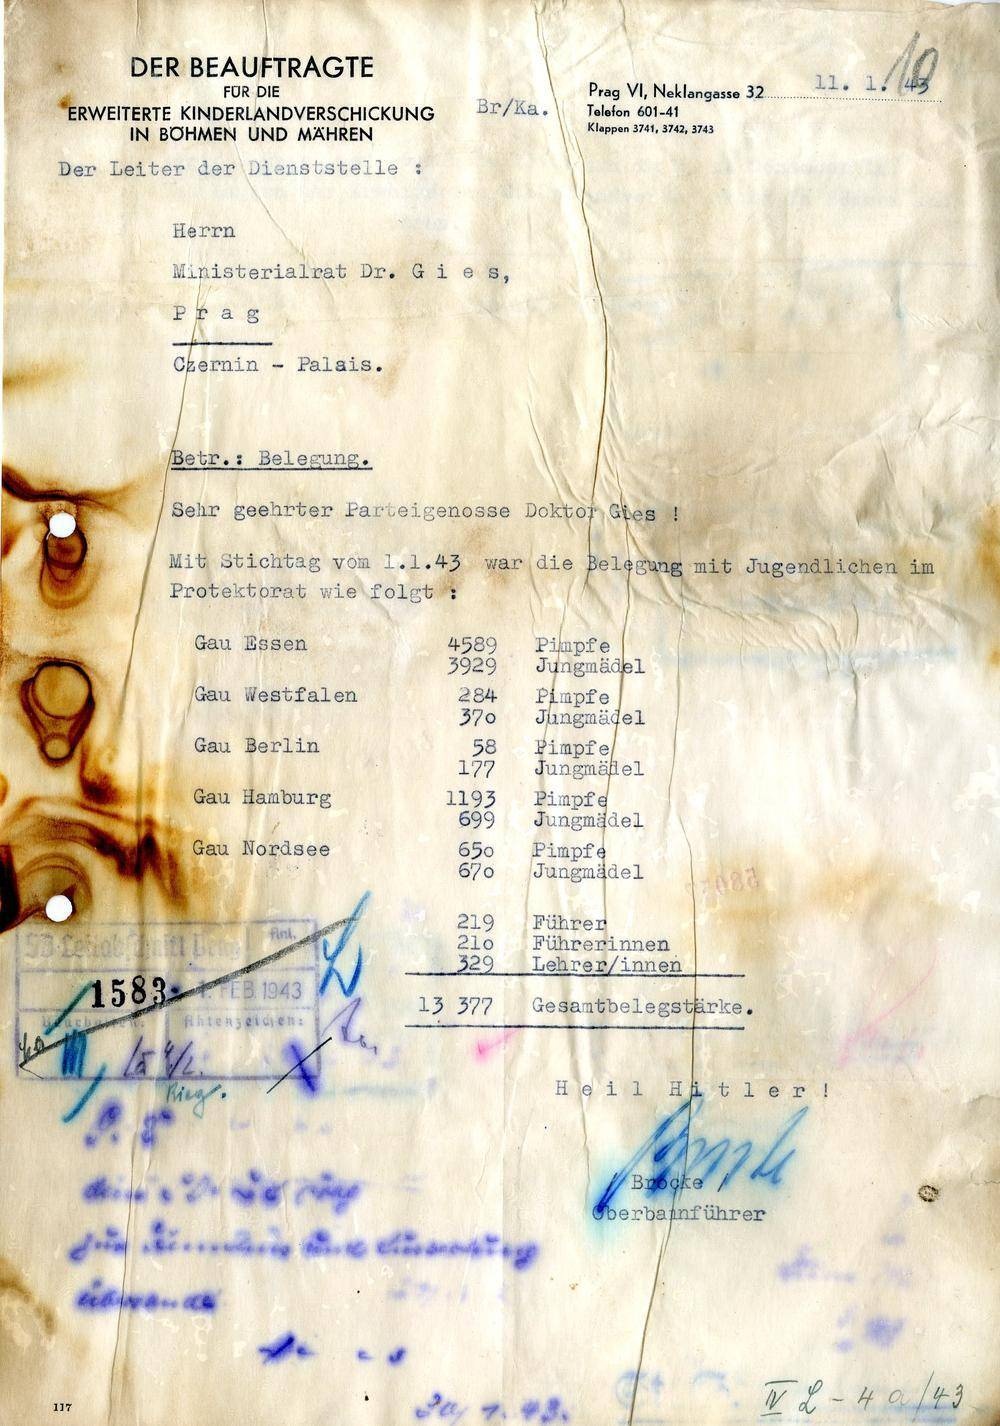 DER BEAUFTRAGTE
FÜR DIE
ERWEITERTE KINDERLANDVERSCHICKUNG
IN BÖHMEN UND MÄHREN
Br/Ka.
Prag VI, Neklangasse 32 11. 1. 43
Telefon 601-41
Klappen 3741, 3742, 3743
10
Der Leiter der Dienststelle :
Herrn
Ministerialrat Dr. G i e s,
P r a g
Czernin - Palais.
Betr.: Belegung.
Sehr geehrter Parteigenosse Doktor Gies !
Mit Stichtag vom 1.1.43 war die Belegung mit Jugendlichen im
Protektorat wie folgt :
Gau Essen 4589 Pimpfe
3929 Jungmädel
Gau Westfalen 284 Pimpfe
37o Jungmädel
Gau Berlin 58 Pimpfe
177 Jungmädel
Gau Hamburg 1193 Pimpfe
699 Jungmädel
Gau Nordsee 65o Pimpfe
67o Jungmädel
219 Führer
21o Führerinnen
329 Lehrer/innen
13 377 Gesamtbelegstärke.
SD-Leitabschnitt Prag Anl.
1583 FEB. 1943
Aktenzeichen:
H e i l H i t l e r !
Brocke
Oberbannführer
zur Kenntnis und Auswertung
30. 1. 43.
IV L - 4 a/43
117